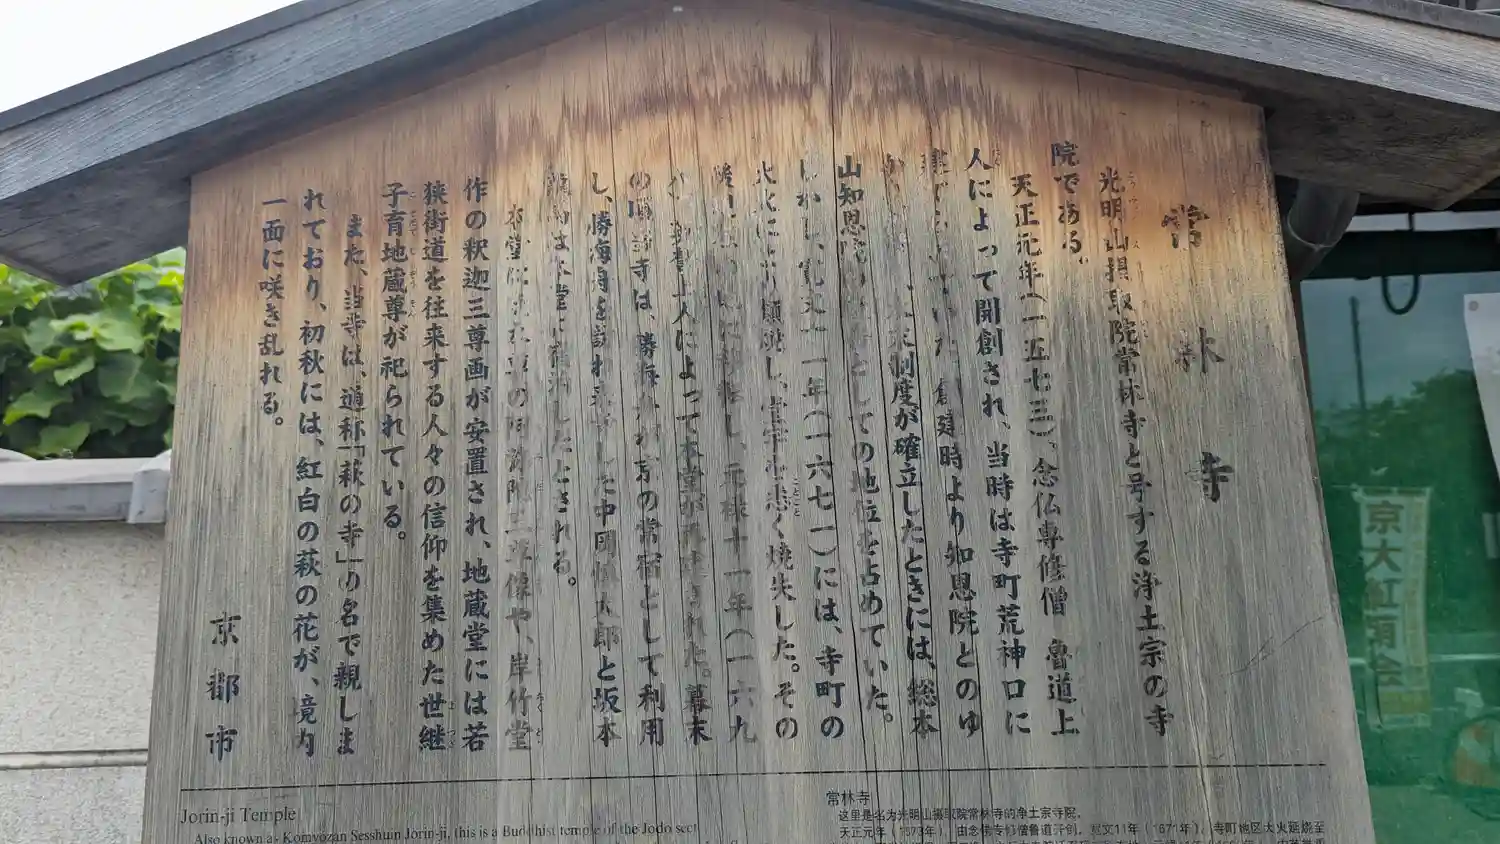 常林寺
光明山摂取院常林寺と号する浄土宗の寺
院である。
天正元年(一五七三)、念仏専修僧 魯道上
人によって開創され、当時は寺町荒神口に
建てられていた。創建時より知恩院とのゆ
制度が確立したときには、総本
山知恩院の としての地位を占めていた。
しかし、寛文十一年(一六七一)には、寺町の
大火により類焼し、堂宇も悉く焼失した。その
後 し、元禄十一年(一六九
上人によって本堂が再建された。幕末
の頃当寺は、勝海舟が京の常宿として利用
し、勝海舟を訪れ た中岡慎太郎と坂本
龍馬は本堂で宿泊したとされる。
本堂には 阿弥陀三尊像や、岸竹堂
作の釈迦三尊画が安置され、地蔵堂には若
狭街道を往来する人々の信仰を集めた世継
子育地蔵尊が祀られている。
また、当寺は、通称「萩の寺」の名で親しま
れており、初秋には、紅白の萩の花が、境内
一面に咲き乱れる。
京都市
Jorin-ji Temple
Also known as Komyozan Sesshuin Jorin-ji, this is a Buddhist temple of the Jodo sect
常林寺
这里是名为光明山摄取院常林寺的净土宗寺院,
天正元年(1573年),由念佛专修僧鲁道开创。宽文11年(1671年),寺町地区大火延烧至
京大紅萠会